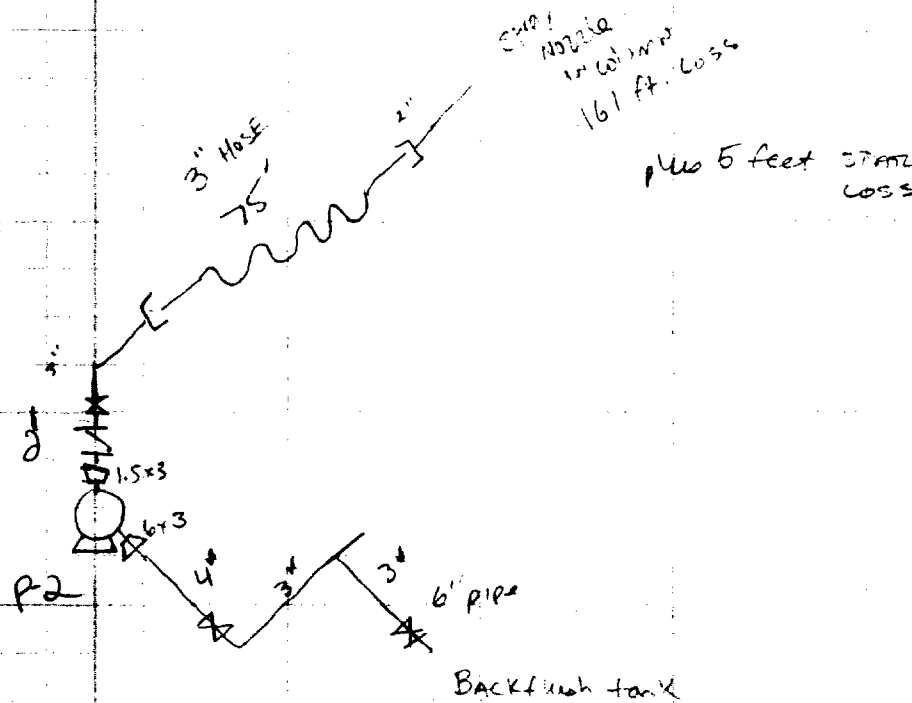 Nozzle
in column
161 ft. Loss
plus 5 feet STATIC
LOSS
3" HOSE
75'
2"
3"
2'
1.5x3
6x3
P-2
4'
3'
3'
6" pipe
BACKflush tank